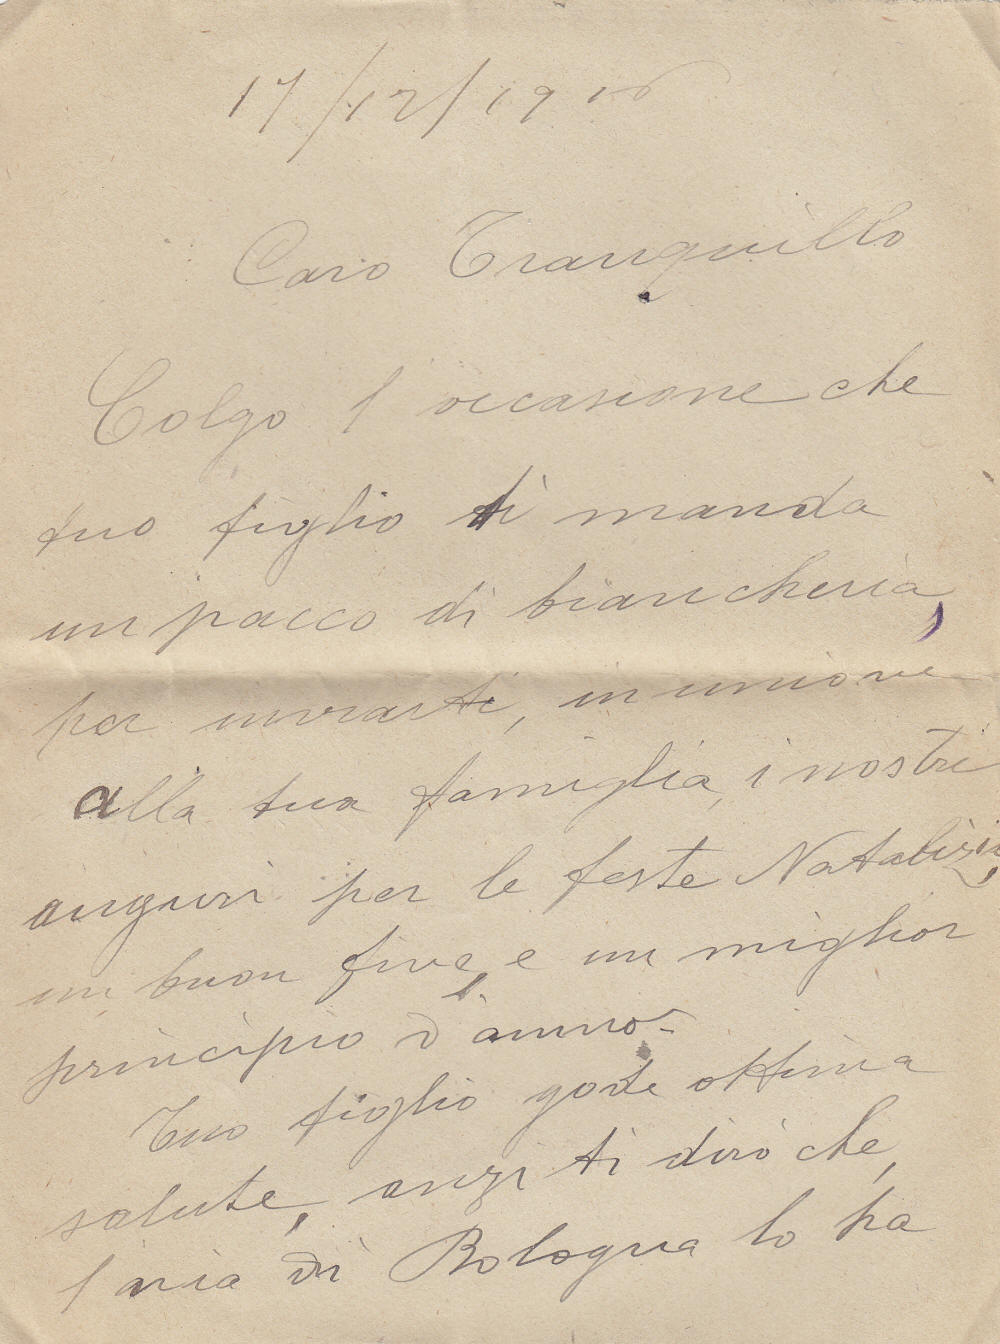 17/12/1916
Caro Tranquillo
Colgo l'occasione che
tuo figlio ti manda
un pacco di biancheria,
per inviarti, in unione
alla tua famiglia, i nostri
auguri per le feste Natalizie,
un buon fine, e un miglior
principio d'anno.
Tuo figlio gode ottima
salute, anzi ti dirò che,
l'aria di Bologna lo ha